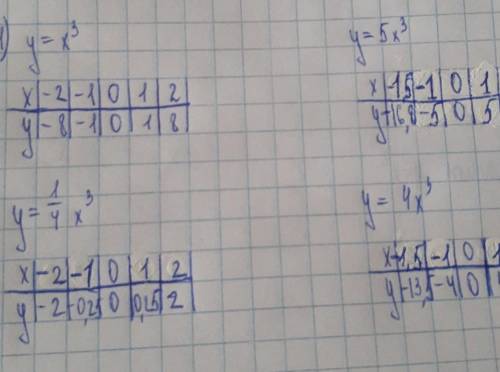 1) y = x³
x | -2 | -1 | 0 | 1 | 2
y | -8 | -1 | 0 | 1 | 8
y = 5x³
x | -1,5 | -1 | 0 | 1
y | -16,8 | -5 | 0 | 5
y = 1/4 x³
x | -2 | -1 | 0 | 1 | 2
y | -2 | -0,25 | 0 | 0,25 | 2
y = 4x³
x | -1,5 | -1 | 0 | 1
y | -13,5 | -4 | 0